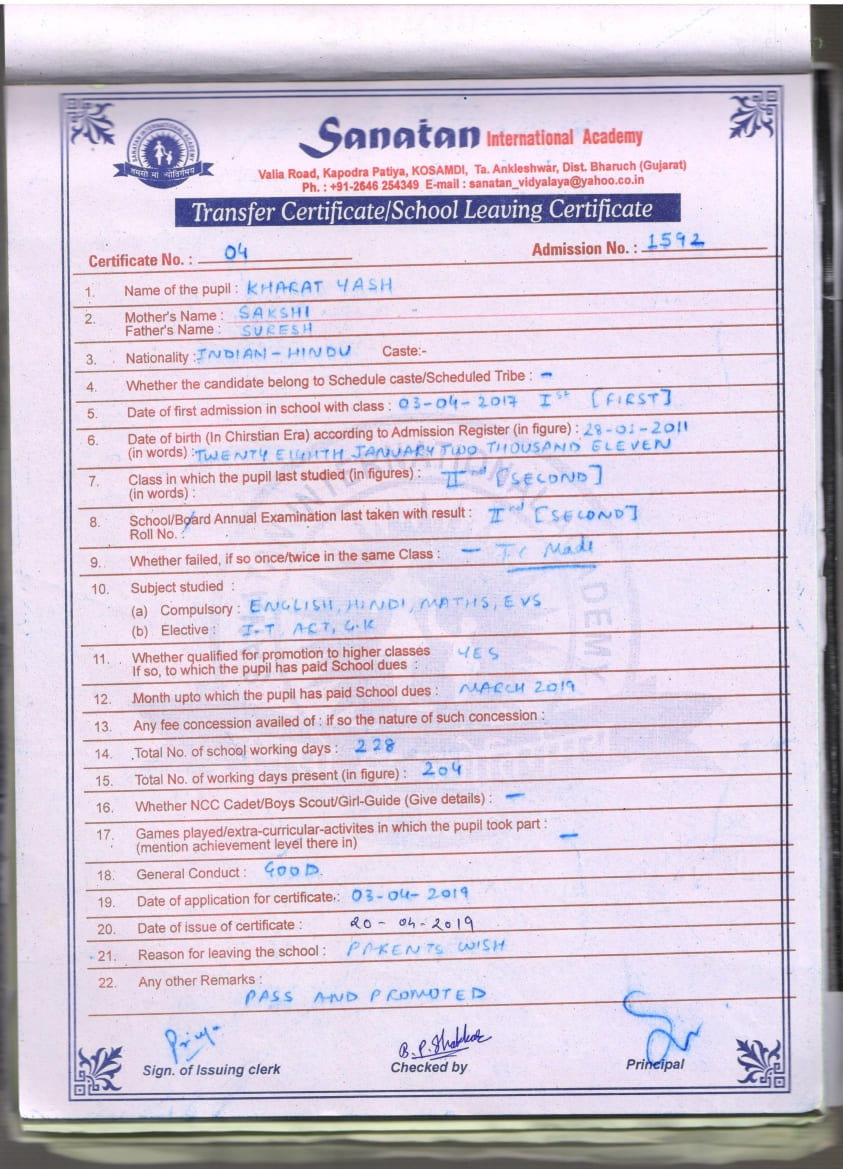 SANATAN INTERNATIONAL ACADEMY
तमसो मा ज्योतिर्गमय
Sanatan International Academy
Valia Road, Kapodra Patiya, KOSAMDI, Ta. Ankleshwar, Dist. Bharuch (Gujarat)
Ph. : +91-2646 254349 E-mail : sanatan_vidyalaya@yahoo.co.in
Transfer Certificate/School Leaving Certificate
Certificate No. : 04 Admission No. : 1592
1. Name of the pupil : KHARAT YASH
2. Mother's Name : SAKSHI
Father's Name : SURESH
3. Nationality : INDIAN - HINDU Caste:-
4. Whether the candidate belong to Schedule caste/Scheduled Tribe : -
5. Date of first admission in school with class : 03-04-2017 Ist [FIRST]
6. Date of birth (In Chirstian Era) according to Admission Register (in figure) : 28-01-2011
(in words) : TWENTY EIGHTH JANUARY TWO THOUSAND ELEVEN
7. Class in which the pupil last studied (in figures) : IInd [SECOND]
(in words) :
8. School/Board Annual Examination last taken with result : IInd [SECOND]
Roll No. :
9. Whether failed, if so once/twice in the same Class : - T.C Made
10. Subject studied :
(a) Compulsory : ENGLISH, HINDI, MATHS, EVS
(b) Elective : I.T, ACT, G.K
11. Whether qualified for promotion to higher classes YES
If so, to which the pupil has paid School dues :
12. Month upto which the pupil has paid School dues : MARCH 2019
13. Any fee concession availed of : if so the nature of such concession :
14. Total No. of school working days : 228
15. Total No. of working days present (in figure) : 204
16. Whether NCC Cadet/Boys Scout/Girl-Guide (Give details) : -
17. Games played/extra-curricular-activites in which the pupil took part : -
(mention achievement level there in)
18. General Conduct : GOOD.
19. Date of application for certificate : 03-04-2019
20. Date of issue of certificate : 20-04-2019
21. Reason for leaving the school : PARENTS WISH
22. Any other Remarks :
PASS AND PROMOTED
Priya B.P.Thakkar
Sign. of Issuing clerk Checked by Principal